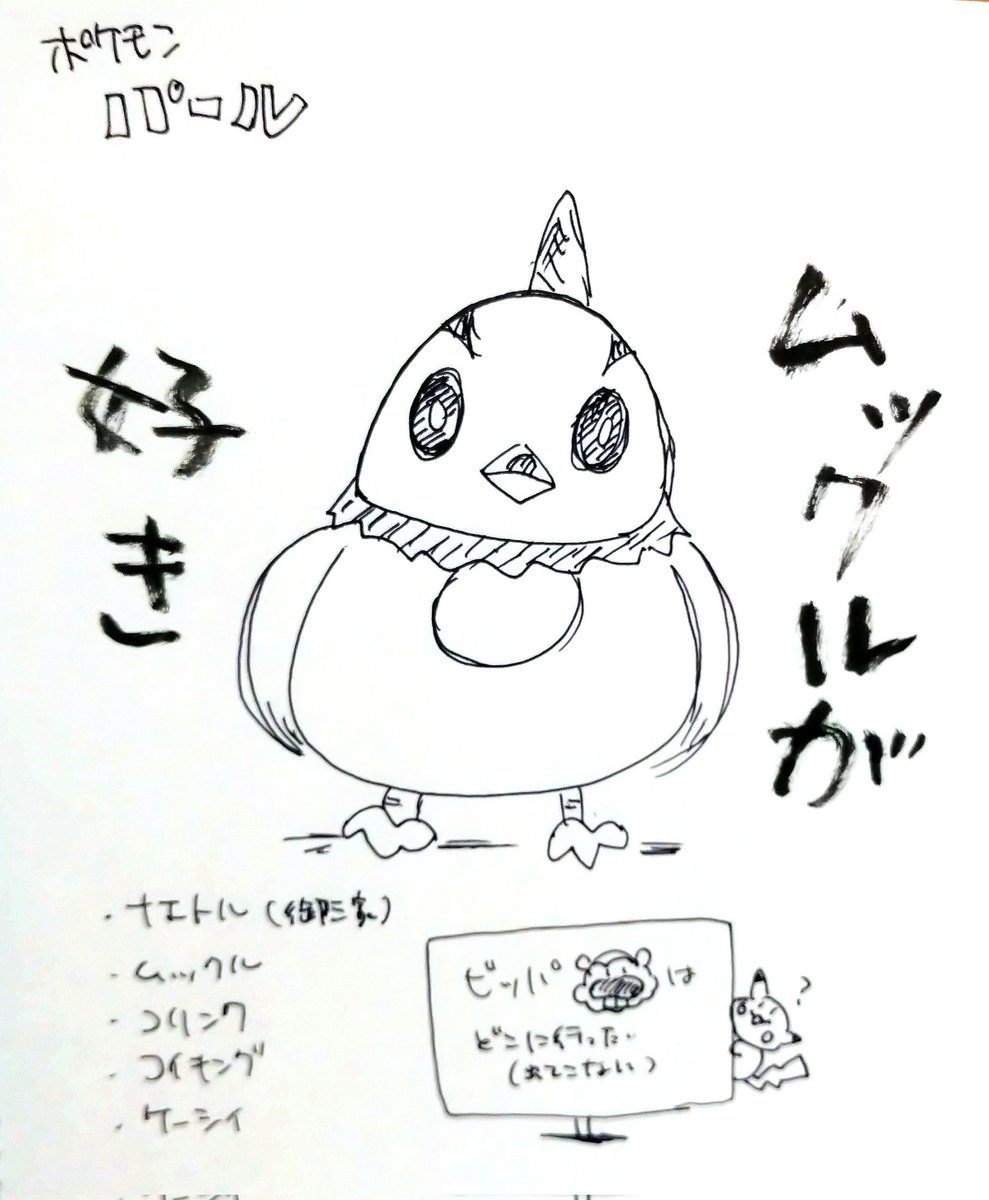 ポケモン
パール
ムックルが
好き
・ナエトル(御三家)
・ムックル
・コリンク
・コイキング
・ケーシィ
ビッパは
どこに行った…
(出てこない)
?